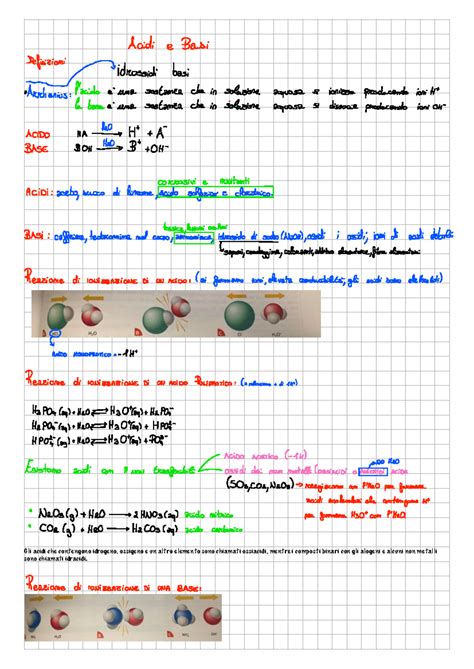 Acidi e Basi
Definizioni
idrossidi basi
• Arrhenius: l'acido è una sostanza che in soluzione acquosa si ionizza producendo ioni H⁺
la base è una sostanza che in soluzione acquosa si dissocia producendo ioni OH⁻
ACIDO HA —H₂O→ H⁺ + A⁻
BASE BOH —H₂O→ B⁺ + OH⁻
corrosivi e irritanti
ACIDI: aceto, succo di limone, acido solforico e cloridrico
BASI: caffeina, teobromina nel cacao, ammoniaca, idrossido di sodio (NaOH), ossidi i ossidi, ioni di acidi deboli
saponi, fibre
REAZIONE DI IONIZZAZIONE DI UN ACIDO: (si formano ioni, elevata conducibilità, gli acidi sono elettroliti)
HCl H₂O Cl⁻ H₃O⁺
ACIDO MONOPROTICO = 1H⁺
REAZIONE DI IONIZZAZIONE DI UN ACIDO POLIPROTICO: ( + di 1H⁺)
H₃PO₄ (aq) + H₂O ⇌ H₃O⁺(aq) + H₂PO₄⁻
H₂PO₄⁻(aq) + H₂O ⇌ H₃O⁺(aq) + HPO₄²⁻
HPO₄²⁻(aq) + H₂O ⇌ H₃O⁺(aq) + PO₄³⁻
Esistono acidi con H non
ACIDO ACETICO (-1H)
ossidi dei non metalli (ossiacidi o anidridi acide
NO H₂O
(SO₃, CO₂, N₂O₅) → reagiscono con l'H₂O per formare
acidi molecolari che contengono H⁺
per formare H₃O⁺ con l'H₂O
• N₂O₅(g) + H₂O → 2HNO₃(aq) acido nitrico
• CO₂ (g) + H₂O → H₂CO₃(aq) acido carbonico
Gli acidi che contengono idrogeno, ossigeno e un altro elemento sono chiamati ossiacidi, mentre i composti binari con gli alogeni e alcuni non metalli
sono chiamati idracidi.
REAZIONE DI IONIZZAZIONE DI UNA BASE:
NH₃ H₂O NH₄⁺ OH⁻